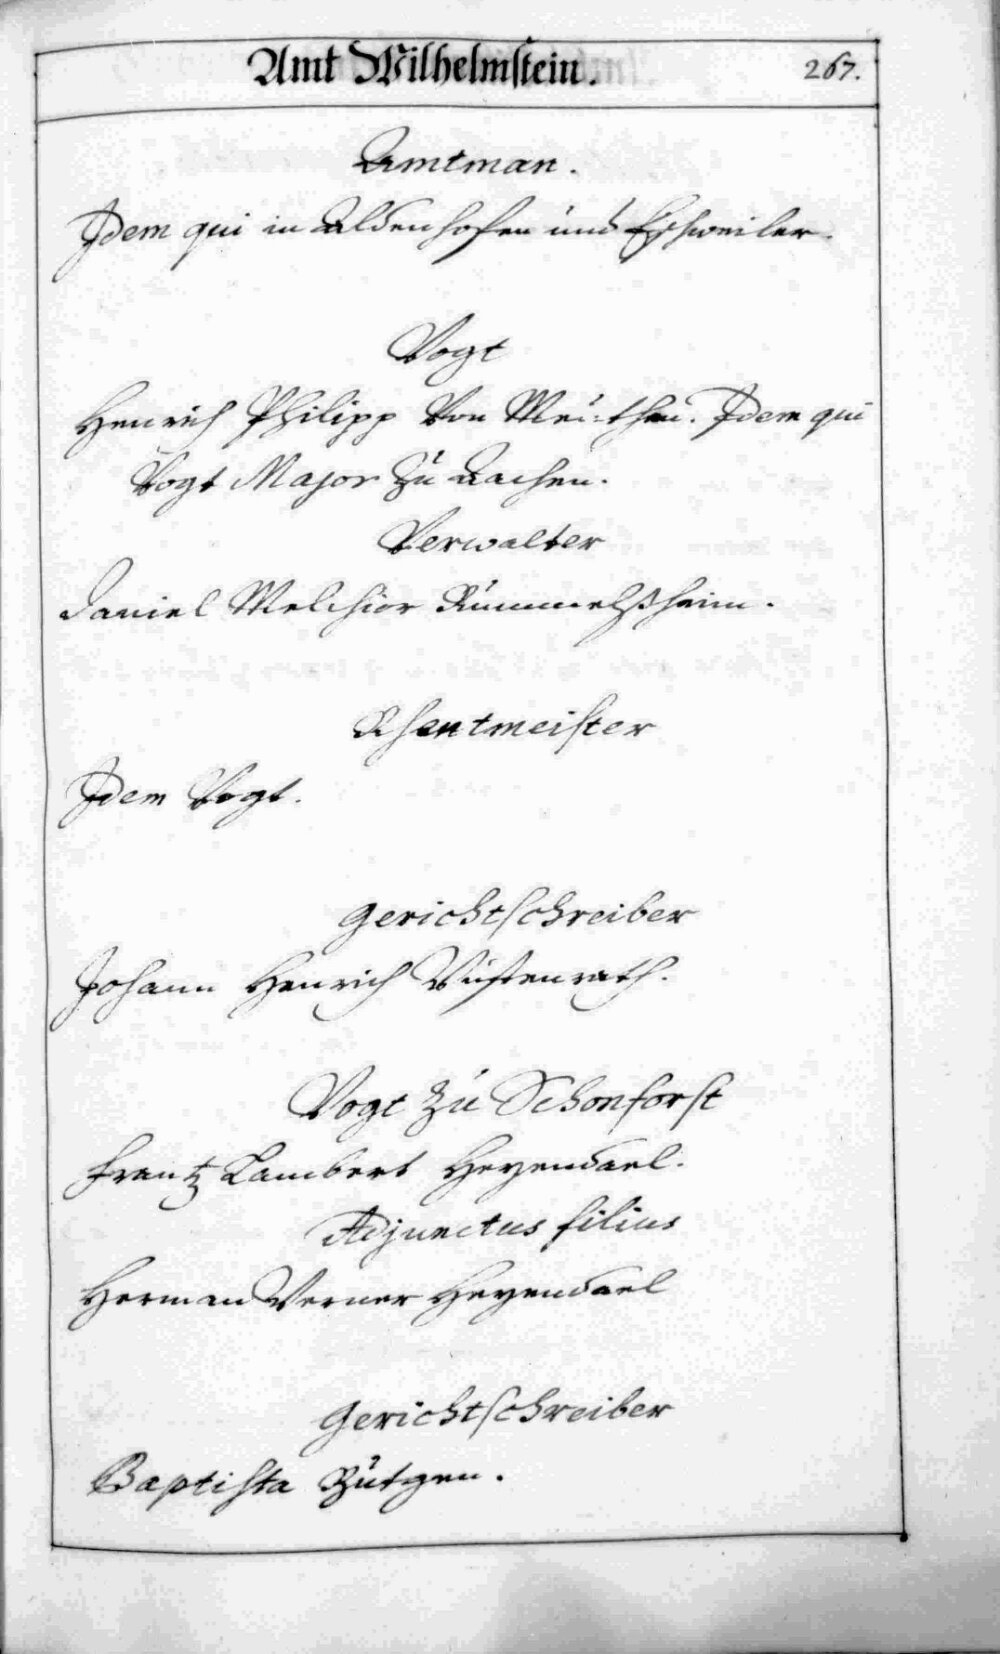 Amt Wilhelmstein.
267.
Amtman.
Idem qui in Aldenhofen und Eschweiler.
Vogt
Henrich Philipp Von Meuthen. Idem qui
Vogt Major Zu Aachen.
Verwalter
Daniel Melchior Rummelßheim.
Rhentmeister
Idem Vogt.
Gerichtschreiber
Johann Henrich Wüstenrath.
Vogt Zu Schonforst
Frantz Lambert Heyendael.
Adjunctus filius
Herman Verner Heyendael
Gerichtschreiber
Baptista